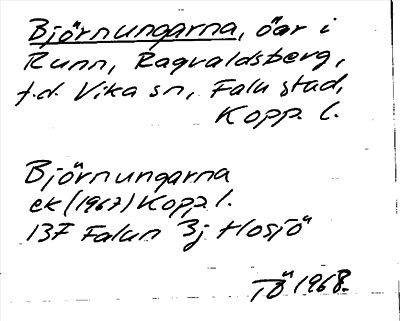 Björnungarna, öar i
Runn, Ragvaldsberg,
f.d. Vika sn, Falu stad,
Kopp. l.
Björnungarna
ek (1967) Kopp l.
137 Falun 3j Hosjö
TÖ 1968.